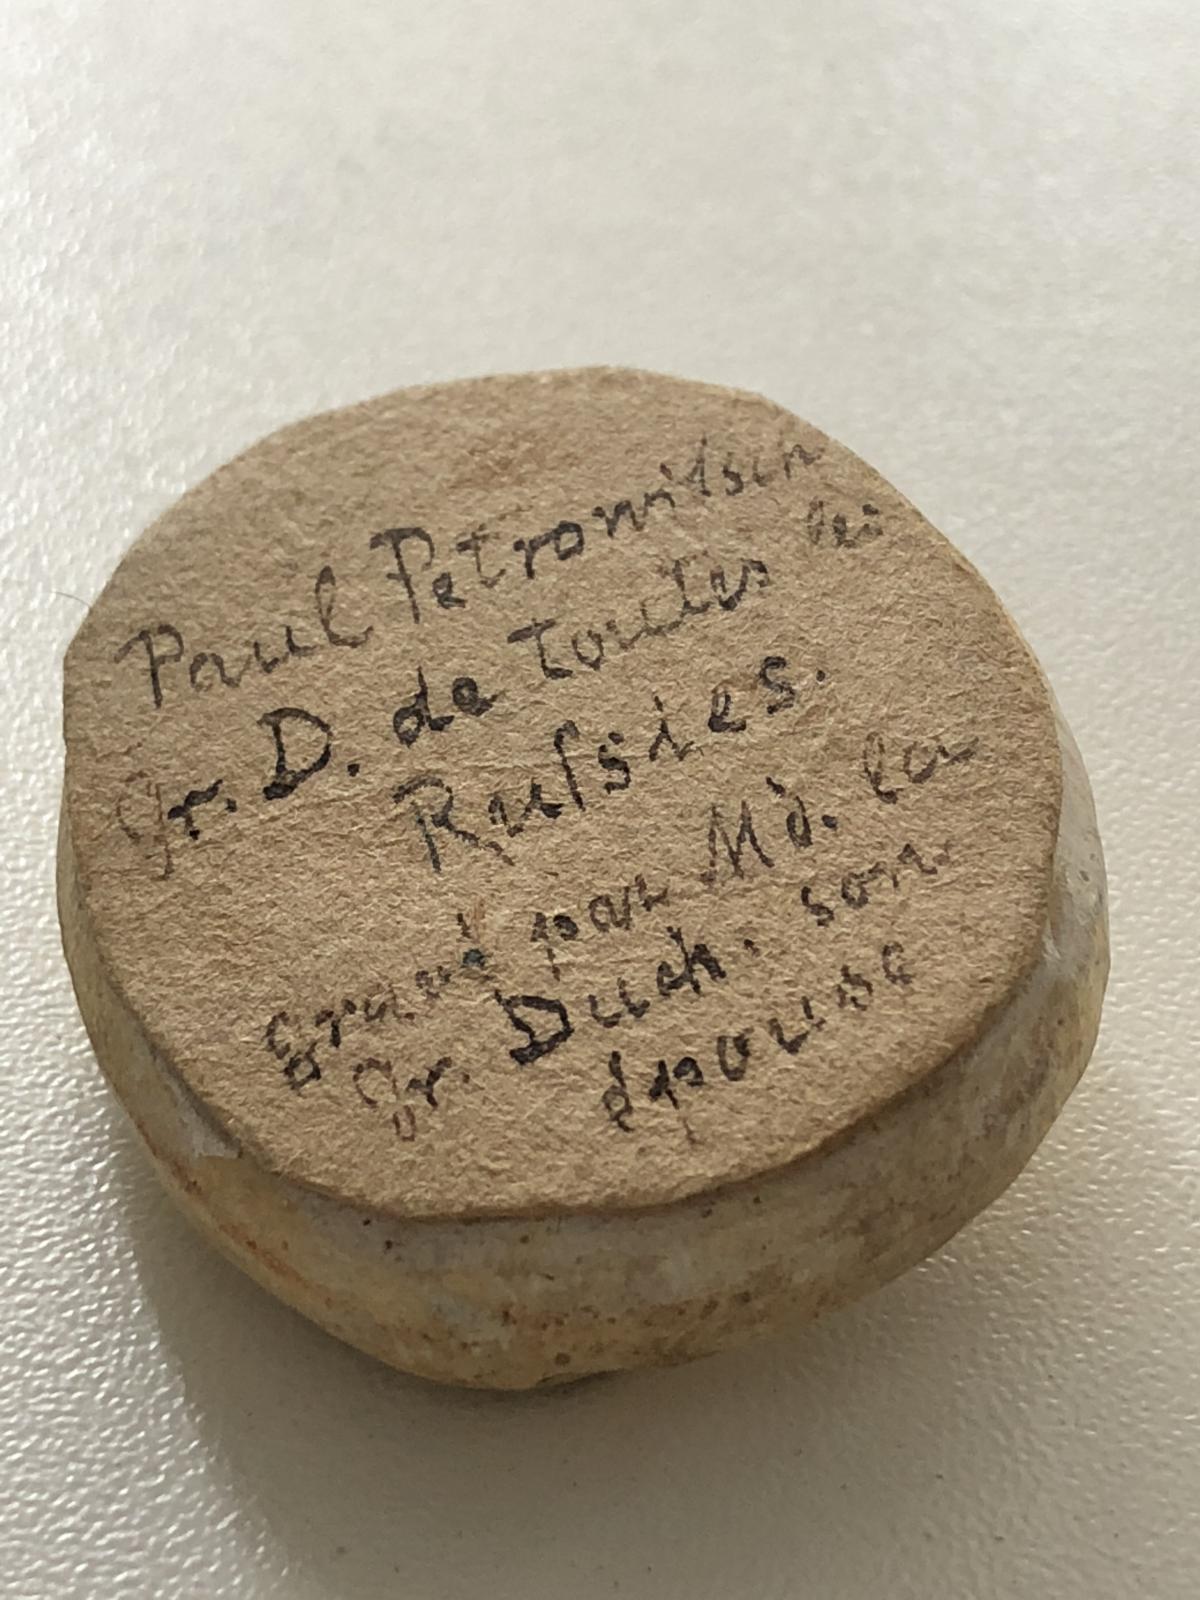 Paul Petrowitsch
Gr. D. de toutes les
Rußsies.
gravé par Md. la
Gr. Duch. son
épouse